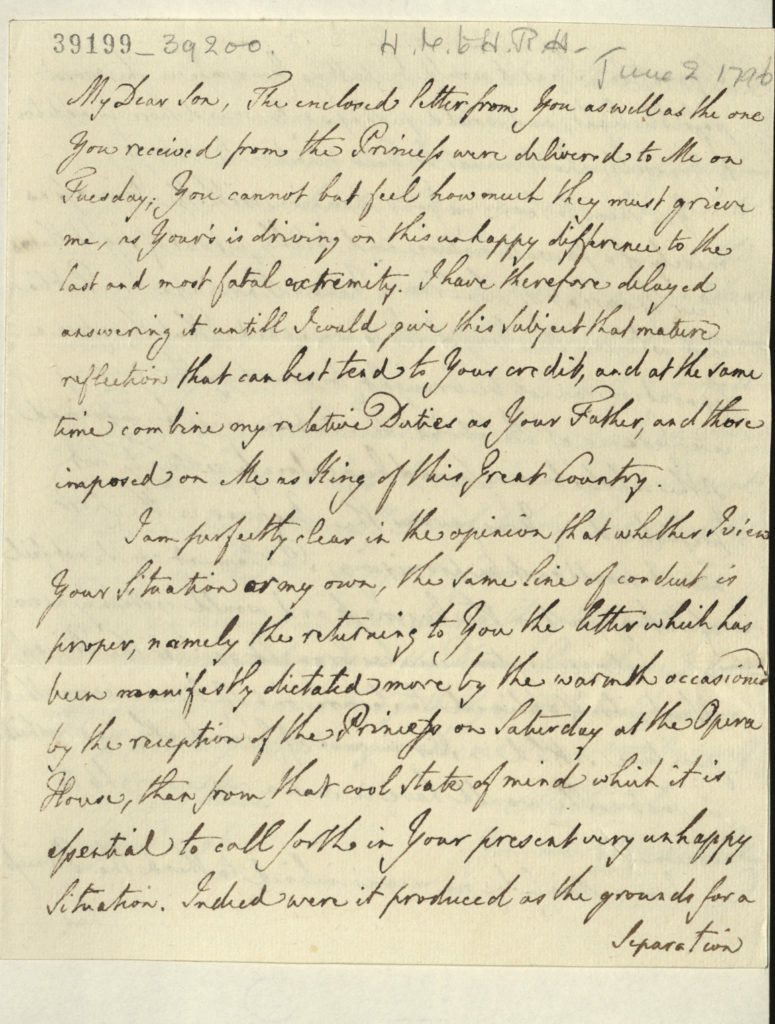 39199_39200.
H.M. to H.R.H.
June 2 1796
My Dear Son, The enclosed letter from You as well as the one
You received from the Princess were delivered to Me on
Tuesday; You cannot but feel how much they must grieve
me, as Your's is driving on this unhappy difference to the
last and most fatal extremity. I have therefore delayed
answering it untill I could give this subject that mature
reflection that can best tend to Your credit, and at the same
time combine my relative Duties as Your Father, and those
imposed on Me as King of this Great Country.
I am perfectly clear in the opinion that whether I view
Your Situation or my own, the same line of conduct is
proper, namely the returning to You the letter which has
been manifestly dictated more by the warmth occasioned
by the reception of the Princess on Saturday at the Opera
House, than from that cool state of mind which it is
essential to call forth in Your present very unhappy
Situation. Indeed were it produced as the grounds for a
Separation